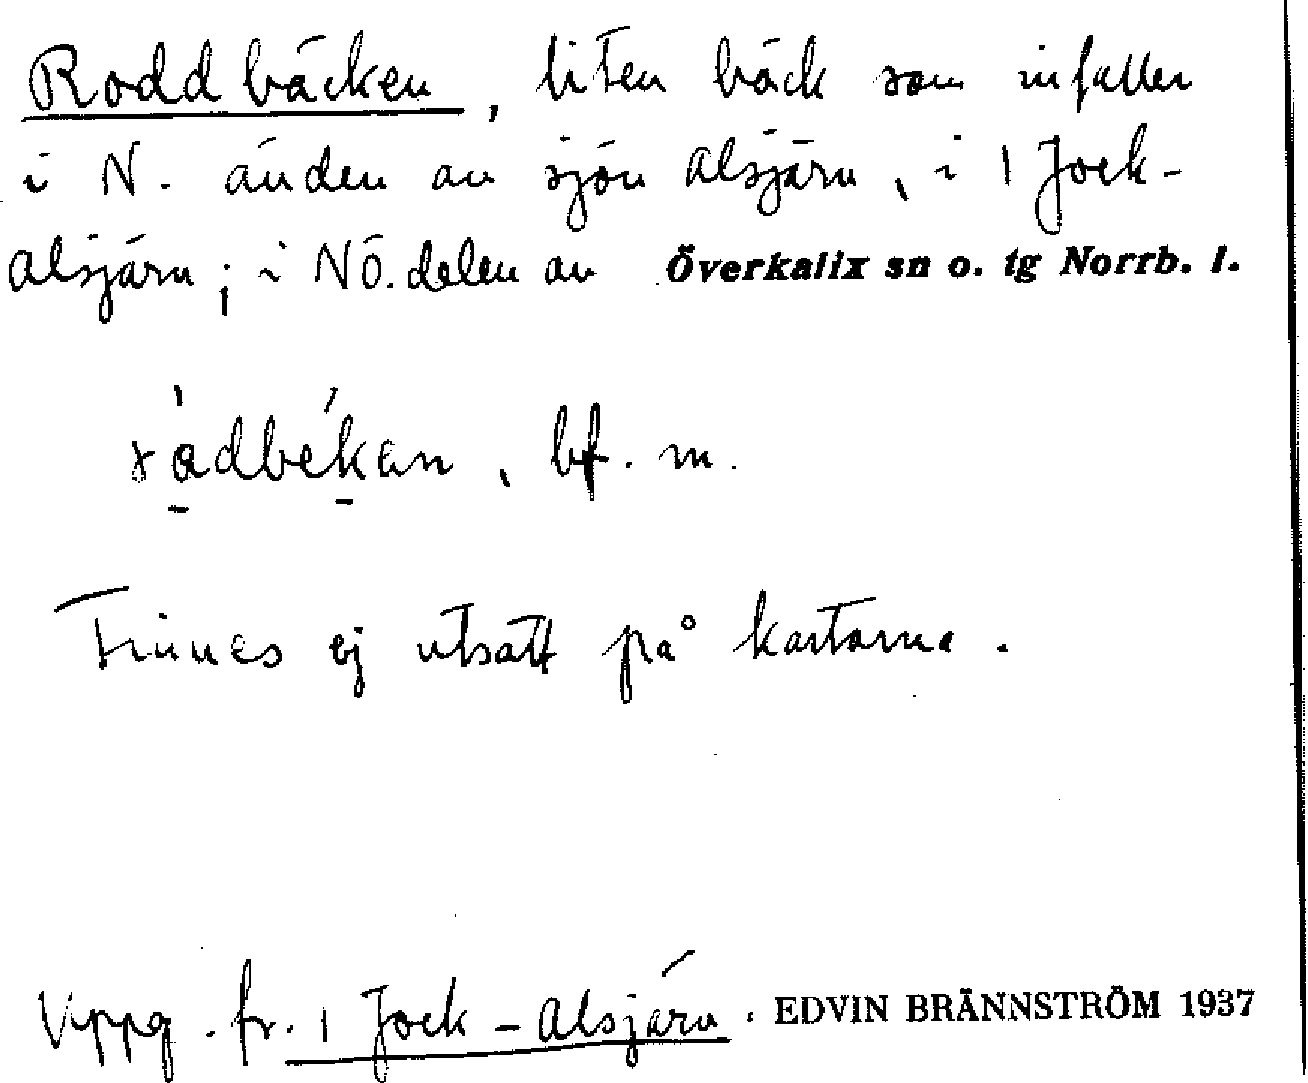 Roddbäcken, liten bäck som infaller
i N. änden av sjön Alsjärv, i 1 Jock-
alsjärv; i NÖ. delen av Överkalix sn o. tg Norrb. l.
bf. m.
Finnes ej utsatt på kartorna.
Uppg. fr. 1 Jock-alsjärv. EDVIN BRÄNNSTRÖM 1937